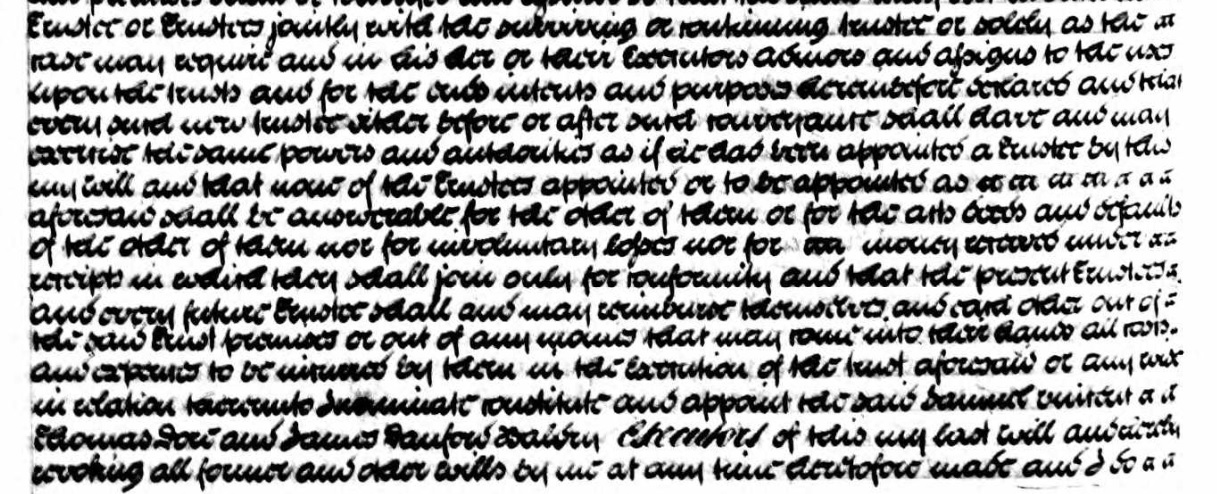 Trustee or Trustees jointly with the surviving or continuing trustee or solely as the
case may require and in his her or their Executors admors and assigns to the uses
upon the trusts and for the ends intents and purposes hereinbefore declared and that
every such new trustee either before or after such conveyance shall have and may
exercise the same powers and authorities as if he had been appointed a Trustee by this
my will and that none of the Trustees appointed or to be appointed as
aforesaid shall be answerable for the other of them or for the acts deeds and defaults
of the other of them nor for involuntary losses nor for money received under
receipts in which they shall join only for conformity and that the present Trustees
and every future Trustee shall and may reimburse themselves and each other out of
the said Trust premises or out of any monies that may come into their hands all costs
and expenses to be incurred by them in the execution of the trust aforesaid or any wise
in relation thereunto I nominate constitute and appoint the said Samuel
Thomas and James Executors of this my last will and hereby
revoking all former and other wills by me at any time heretofore made and I do